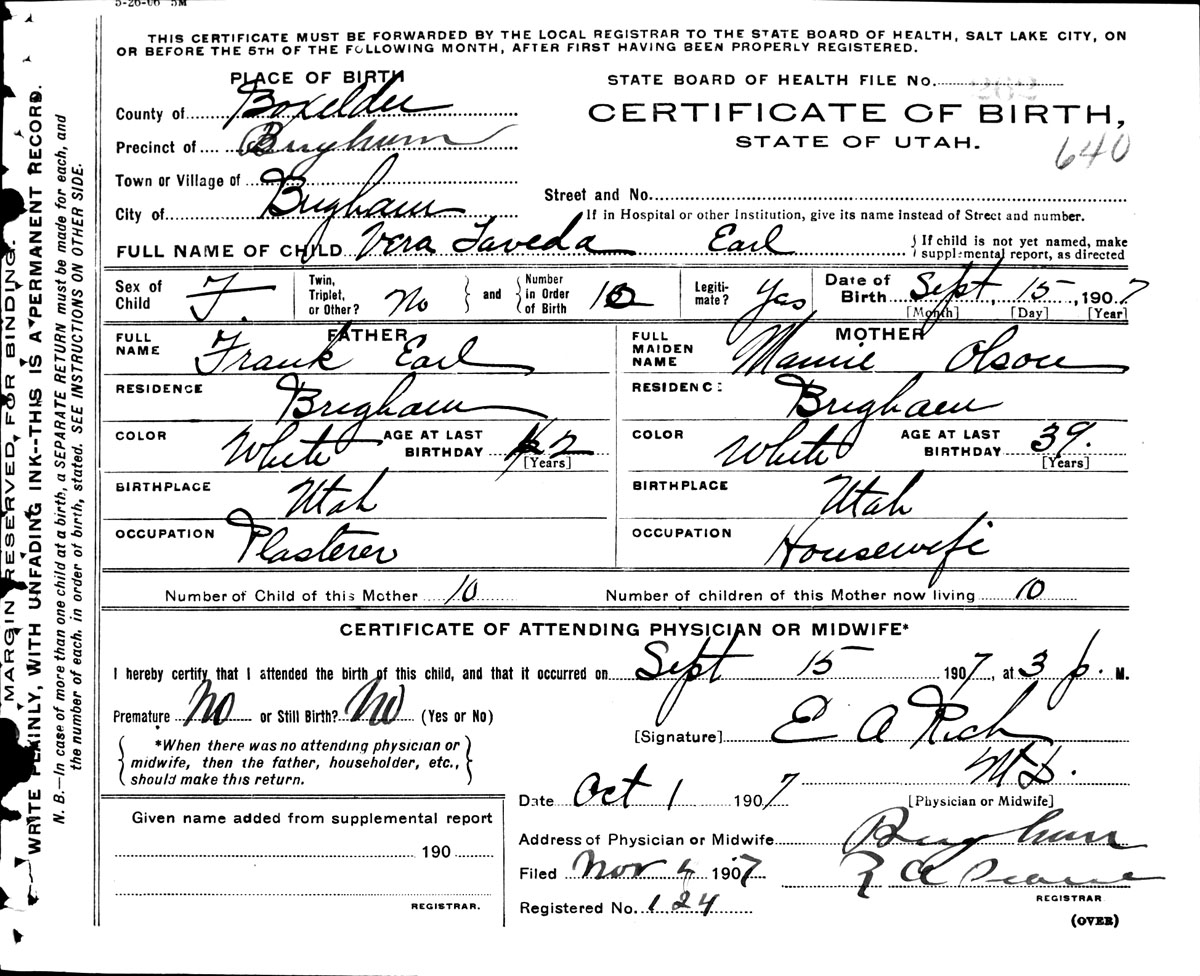 5-26-06 5M
THIS CERTIFICATE MUST BE FORWARDED BY THE LOCAL REGISTRAR TO THE STATE BOARD OF HEALTH, SALT LAKE CITY, ON
OR BEFORE THE 5TH OF THE FOLLOWING MONTH, AFTER FIRST HAVING BEEN PROPERLY REGISTERED.
MARGIN RESERVED FOR BINDING.
WRITE PLAINLY, WITH UNFADING INK--THIS IS A PERMANENT RECORD.
N. B.—In case of more than one child at a birth, a SEPARATE RETURN must be made for each, and
the number of each, in order of birth, stated. SEE INSTRUCTIONS ON OTHER SIDE.
PLACE OF BIRTH
County of Boxelder
Precinct of Brigham
Town or Village of
City of Brigham
STATE BOARD OF HEALTH FILE No.
CERTIFICATE OF BIRTH,
STATE OF UTAH.
640
Street and No.
If in Hospital or other Institution, give its name instead of Street and number.
FULL NAME OF CHILD Vera Laveda Earl { If child is not yet named, make
supplemental report, as directed
Sex of Child F. Twin, Triplet, or Other? No } and { Number in Order of Birth 10 Legiti- mate? Yas Date of Birth Sept, 15, 1907
[Month] [Day] [Year]
FATHER
FULL NAME Frank Earl
RESIDENCE Brigham
COLOR White AGE AT LAST BIRTHDAY 42
[Years]
BIRTHPLACE Utah
OCCUPATION Plasterer
MOTHER
FULL MAIDEN NAME Mamie Olson
RESIDENCE: Brigham
COLOR White AGE AT LAST BIRTHDAY 39.
[Years]
BIRTHPLACE Utah
OCCUPATION Housewife
Number of Child of this Mother 10 Number of children of this Mother now living 10
CERTIFICATE OF ATTENDING PHYSICIAN OR MIDWIFE*
I hereby certify that I attended the birth of this child, and that it occurred on Sept 15 1907, at 3 p. M.
Premature No or Still Birth? No (Yes or No)
{ *When there was no attending physician or
midwife, then the father, householder, etc.,
should make this return. }
[Signature] E A Rich
M.D.
[Physician or Midwife]
Date Oct 1 1907
Address of Physician or Midwife Brigham
Filed Nov 4 1907 R A
REGISTRAR
Registered No. 124
(OVER)
Given name added from supplemental report
190
REGISTRAR.